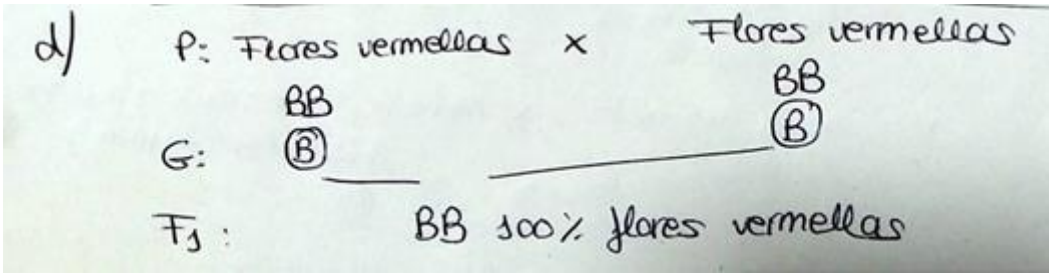 d) P: Flores vermellas x Flores vermellas
BB BB
G: B B
F1: BB 100% flores vermellas